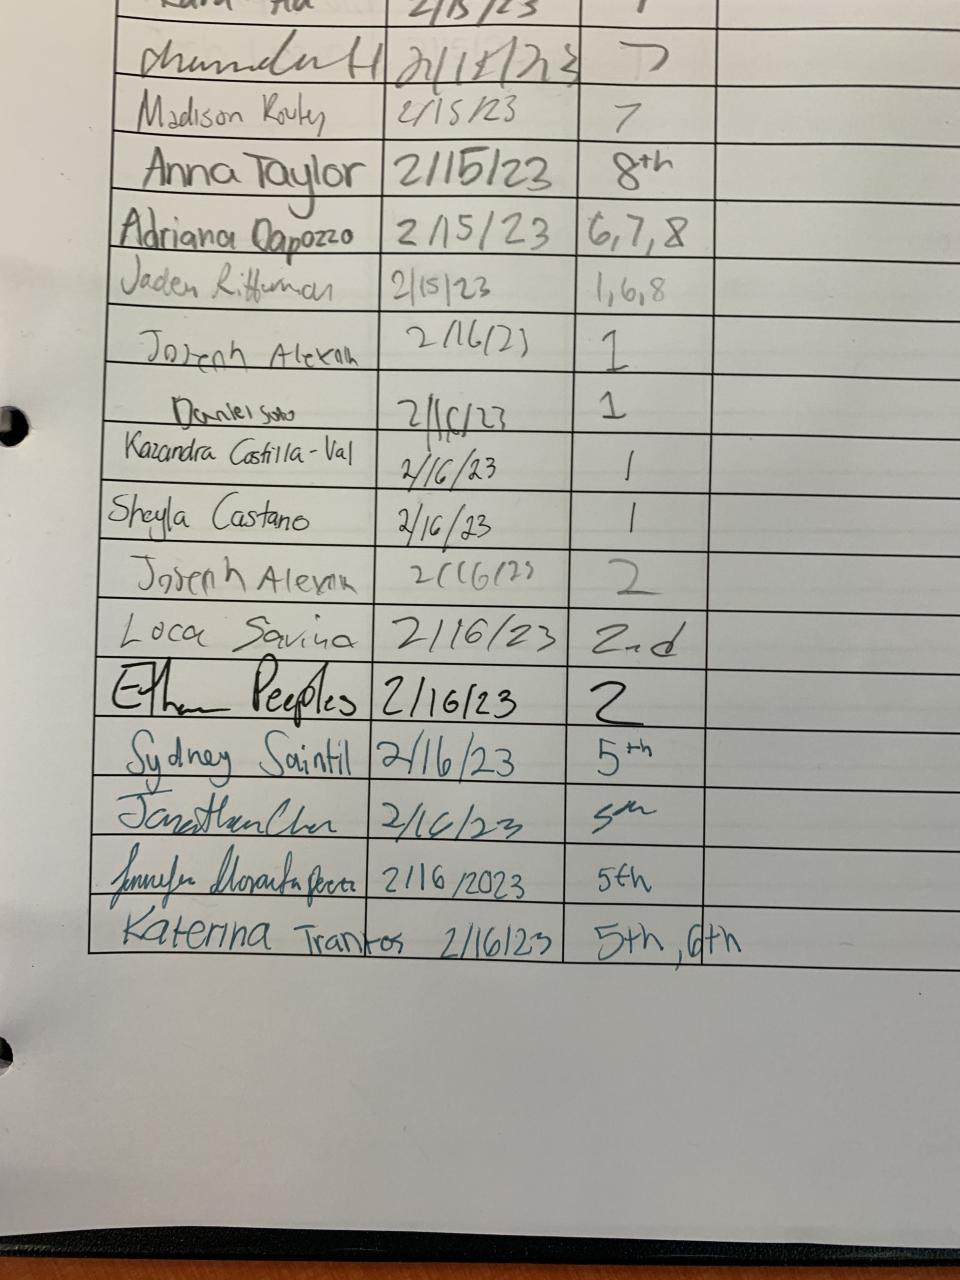 2/15/23
2/15/23 7
Madison 2/15/23 7
Anna Taylor 2/15/23 8th
Adriana Dapozzo 2/15/23 6,7,8
Jaden 2/15/23 1,6,8
Joseph 2/16/23 1
Daniel Soto 2/16/23 1
Kazandra Castilla-Val 2/16/23 1
Sheyla Castano 2/16/23 1
Joseph 2/16/23 2
Loca Savina 2/16/23 2nd
Ethan Peeples 2/16/23 2
Sydney Saintil 2/16/23 5th
Jonathan 2/16/23 5th
Jennifer 2/16/2023 5th
Katerina Trankos 2/16/23 5th, 6th